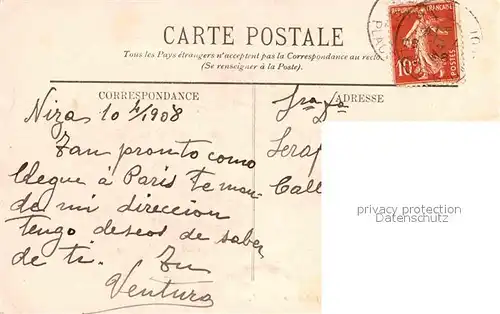 CARTE POSTALE
Tous les Pays étrangers n'acceptent pas la Correspondance au recto
(Se renseigner à la Poste).
REPUBLIQUE FRANÇAISE
10c
CORRESPONDANCE
ADRESSE
Niza 10 4/1908
Tan pronto como
llegue à Paris te man-
de mi direccion
tengo deseos de saber
de ti. Tu
Ventura
Sra Da
Seraf
Call
privacy protection
Datenschutz